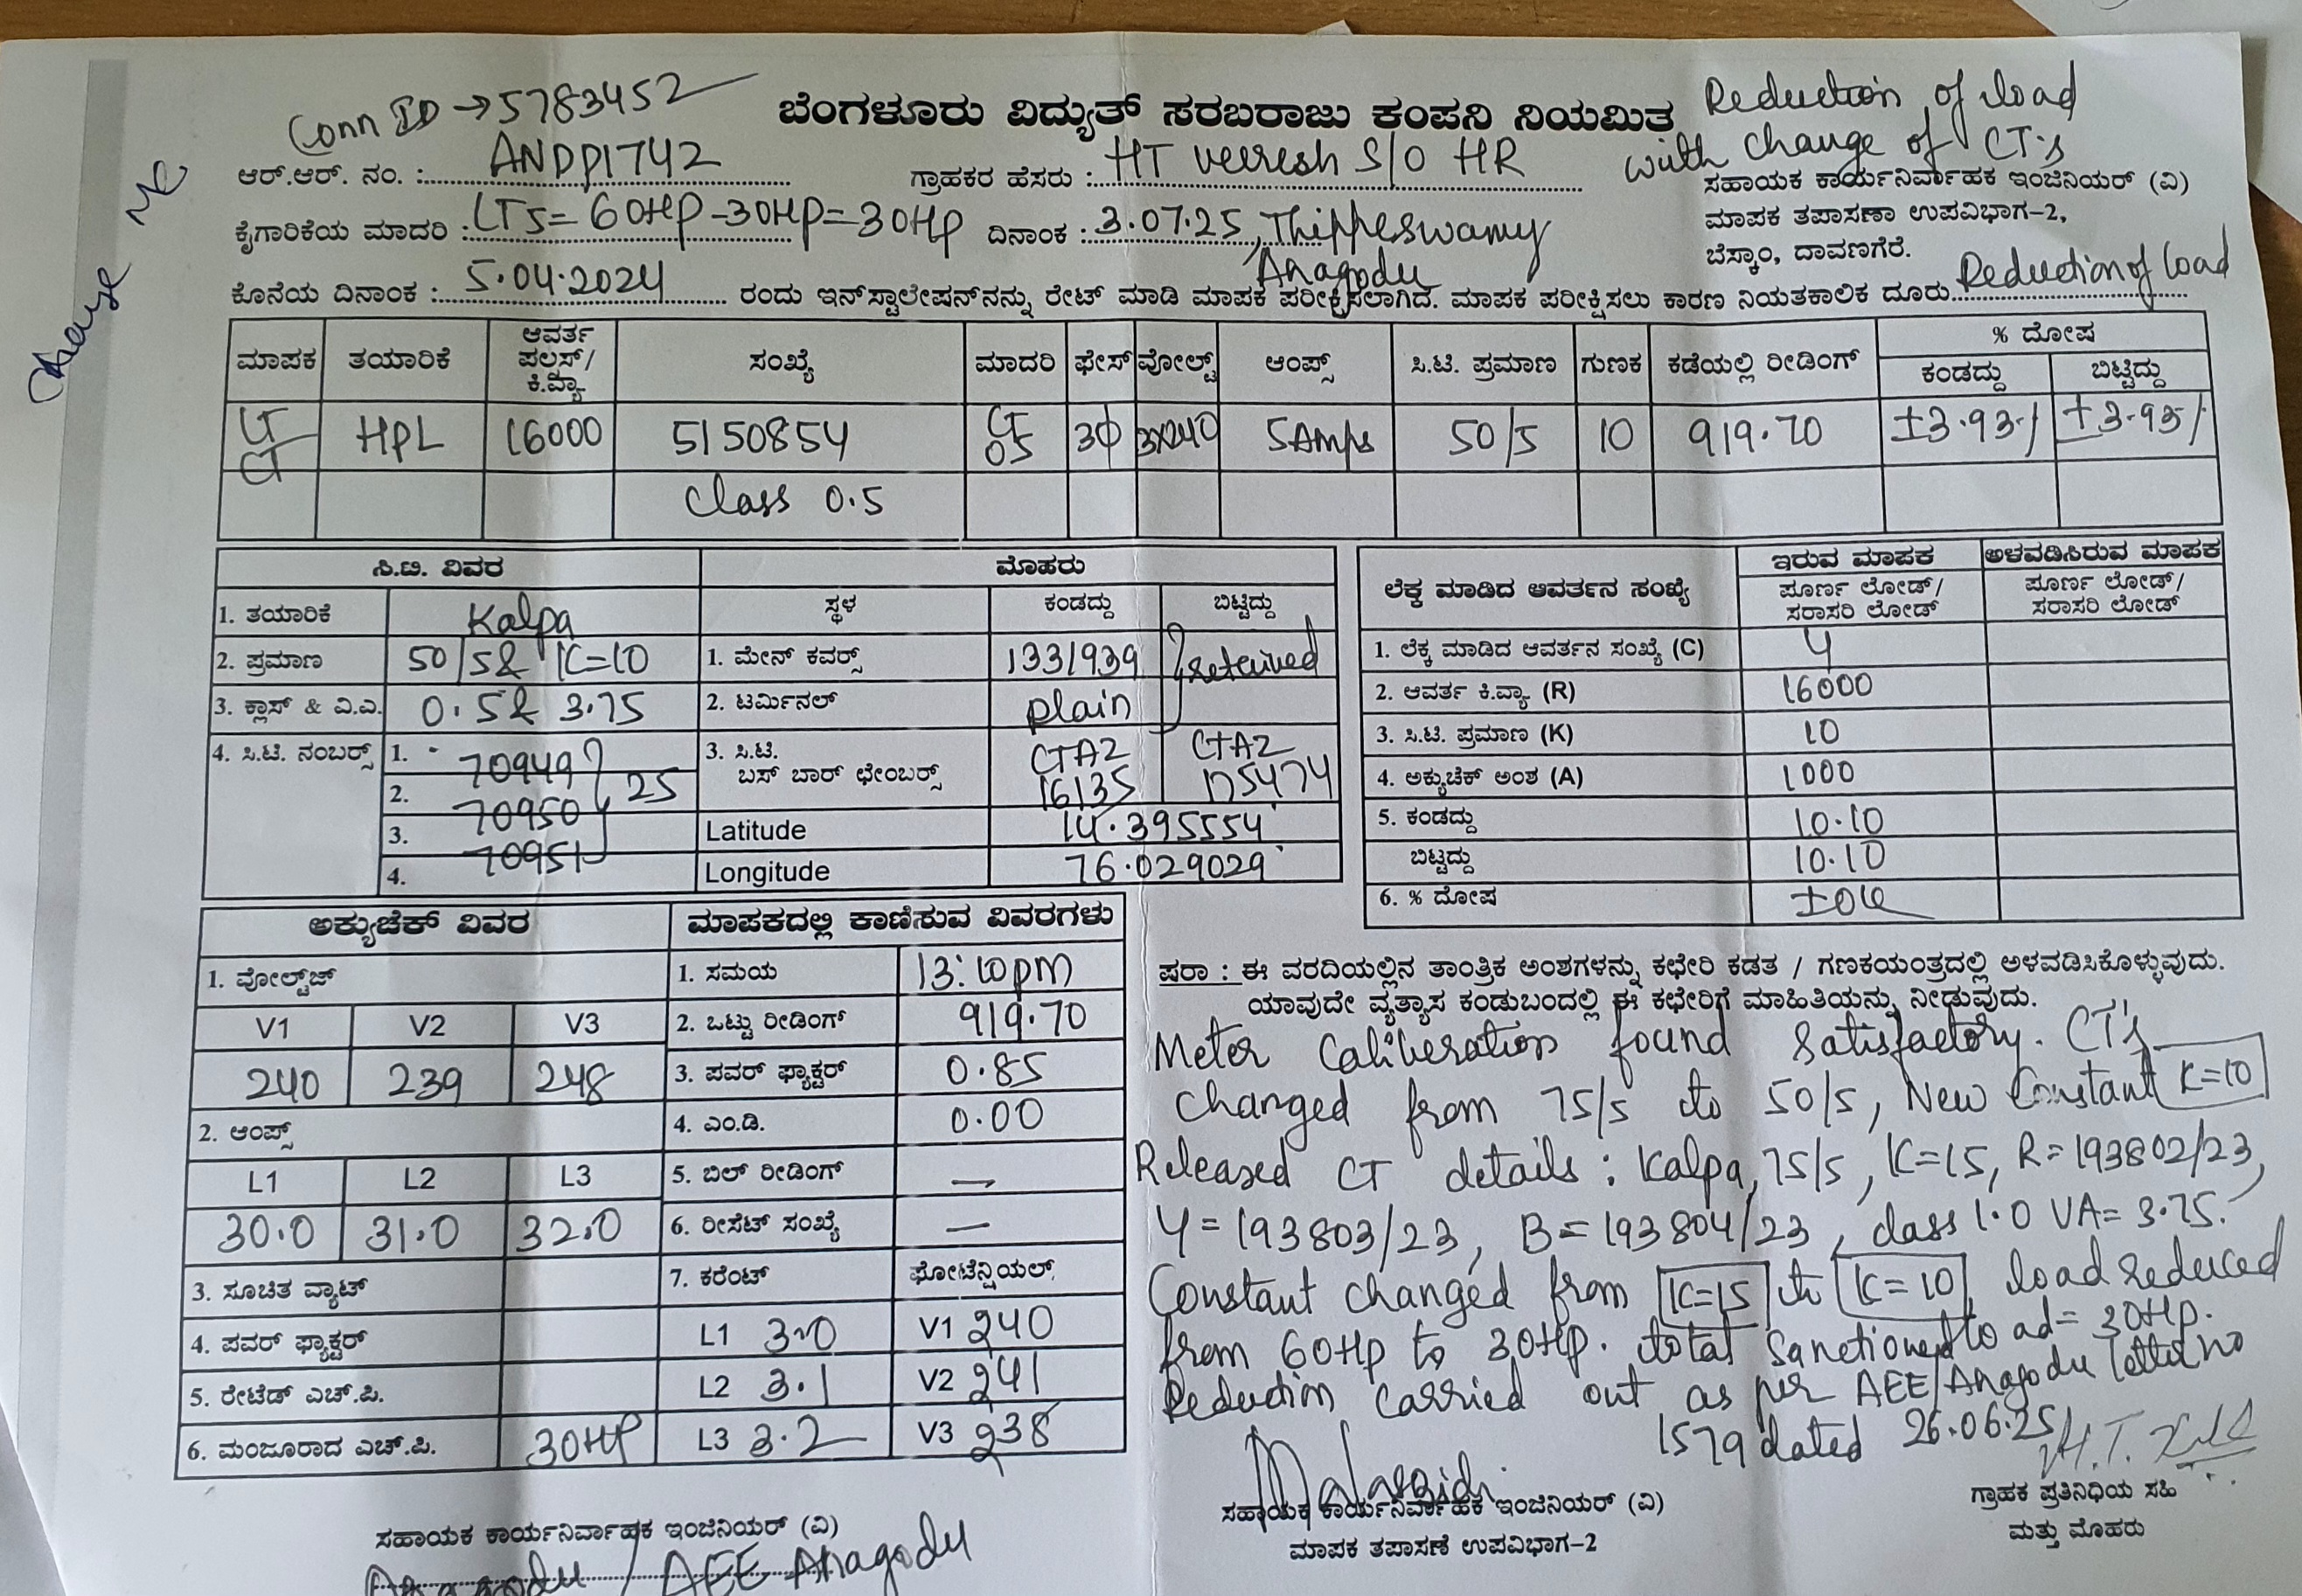 Conn ID → 5783452
ಬೆಂಗಳೂರು ವಿದ್ಯುತ್ ಸರಬರಾಜು ಕಂಪನಿ ನಿಯಮಿತ
Reduction of load
with change of CT's
ಆರ್.ಆರ್. ನಂ. : ANDP1742 ಗ್ರಾಹಕರ ಹೆಸರು : HT veeresh S/O HR
ಸಹಾಯಕ ಕಾರ್ಯನಿರ್ವಾಹಕ ಇಂಜಿನಿಯರ್ (ವಿ)
ಕೈಗಾರಿಕೆಯ ಮಾದರಿ : LT5 = 60HP - 30HP = 30HP ದಿನಾಂಕ : 3.07.25, Thippeswamy
ಮಾಪಕ ತಪಾಸಣಾ ಉಪವಿಭಾಗ-2,
ಬೆಸ್ಕಾಂ, ದಾವಣಗೆರೆ.
Anagodu
ಕೊನೆಯ ದಿನಾಂಕ : 5.04.2024 ರಂದು ಇನ್‌ಸ್ಟಾಲೇಷನ್‌ನನ್ನು ರೇಟ್ ಮಾಡಿ ಮಾಪಕ ಪರೀಕ್ಷಿಸಲಾಗಿದೆ. ಮಾಪಕ ಪರೀಕ್ಷಿಸಲು ಕಾರಣ ನಿಯತಕಾಲಿಕ ದೂರು Reduction of load
change
ಮಾಪಕ ತಯಾರಿಕೆ ಆವರ್ತ ಪಲ್ಸಸ್/ ಕಿ.ವ್ಯಾ ಸಂಖ್ಯೆ ಮಾದರಿ ಫೇಸ್ ವೋಲ್ಟ್ ಆಂಪ್ಸ್ ಸಿ.ಟಿ. ಪ್ರಮಾಣ ಗುಣಕ ಕಡೆಯಲ್ಲಿ ರೀಡಿಂಗ್ % ದೋಷ
ಕಂಡದ್ದು ಬಿಟ್ಟಿದ್ದು
LT CT HPL 16000 5150854 3Φ 3x240 5Amps 50/5 10 919.70 ±3.93% ±3.93%
class 0.5
ಸಿ.ಟಿ. ವಿವರ ಮೊಹರು
1. ತಯಾರಿಕೆ Kalpa ಸ್ಥಳ ಕಂಡದ್ದು ಬಿಟ್ಟಿದ್ದು
2. ಪ್ರಮಾಣ 50/5 & K=10 1. ಮೇನ್ ಕವರ್ಸ್ 1331939 retained
3. ಕ್ಲಾಸ್ & ವಿ.ಎ. 0.5 & 3.75 2. ಟರ್ಮಿನಲ್ plain
4. ಸಿ.ಟಿ. ನಂಬರ್ಸ್ 1. 70949 3. ಸಿ.ಟಿ. CTA2 CTA2
2. 70950 25 ಬಸ್ ಬಾರ್ ಛೇಂಬರ್ಸ್ 16135 175474
3. 70951 Latitude 14.395554
4. Longitude 76.029029
ಲೆಕ್ಕ ಮಾಡಿದ ಆವರ್ತನ ಸಂಖ್ಯೆ ಇರುವ ಮಾಪಕ ಅಳವಡಿಸಿರುವ ಮಾಪಕ
ಪೂರ್ಣ ಲೋಡ್/ ಸರಾಸರಿ ಲೋಡ್ ಪೂರ್ಣ ಲೋಡ್/ ಸರಾಸರಿ ಲೋಡ್
1. ಲೆಕ್ಕ ಮಾಡಿದ ಆವರ್ತನ ಸಂಖ್ಯೆ (C) 4
2. ಆವರ್ತ ಕಿ.ವ್ಯಾ (R) 16000
3. ಸಿ.ಟಿ. ಪ್ರಮಾಣ (K) 10
4. ಅಕ್ಯುಚೆಕ್ ಅಂಶ (A) 1000
5. ಕಂಡದ್ದು 10.10
ಬಿಟ್ಟದ್ದು 10.10
6. % ದೋಷ
ಅಕ್ಯುಚೆಕ್ ವಿವರ ಮಾಪಕದಲ್ಲಿ ಕಾಣಿಸುವ ವಿವರಗಳು
1. ವೋಲ್ಟೇಜ್ 1. ಸಮಯ 13:10pm
V1 V2 V3 2. ಒಟ್ಟು ರೀಡಿಂಗ್ 919.70
240 239 248 3. ಪವರ್ ಫ್ಯಾಕ್ಟರ್ 0.85
2. ಆಂಪ್ಸ್ 4. ಎಂ.ಡಿ. 0.00
L1 L2 L3 5. ಬಿಲ್ ರೀಡಿಂಗ್ —
30.0 31.0 32.0 6. ರೀಸೆಟ್ ಸಂಖ್ಯೆ —
3. ಸೂಚಿತ ವ್ಯಾಟ್ 7. ಕರೆಂಟ್ ಫೋಟೆನ್ಷಿಯಲ್
4. ಪವರ್ ಫ್ಯಾಕ್ಟರ್ L1 3.0 V1 240
5. ರೇಟೆಡ್ ಎಚ್.ಪಿ. L2 3.1 V2 241
6. ಮಂಜೂರಾದ ಎಚ್.ಪಿ. 30HP L3 3.2 V3 238
ಷರಾ : ಈ ವರದಿಯಲ್ಲಿನ ತಾಂತ್ರಿಕ ಅಂಶಗಳನ್ನು ಕಛೇರಿ ಕಡತ / ಗಣಕಯಂತ್ರದಲ್ಲಿ ಅಳವಡಿಸಿಕೊಳ್ಳುವುದು.
ಯಾವುದೇ ವ್ಯತ್ಯಾಸ ಕಂಡುಬಂದಲ್ಲಿ ಈ ಕಛೇರಿಗೆ ಮಾಹಿತಿಯನ್ನು ನೀಡುವುದು.
Meter Caliberation found Satisfactory. CT's
changed from 75/5 to 50/5, New Constant K=10
Released CT details : Kalpa, 75/5, K=15, R=193802/23,
Y=193803/23, B=193804/23, class 1.0 VA=3.75.
Constant changed from K=15 to K=10, load reduced
from 60HP to 30HP. total Sanctioned load = 30HP.
Reduction carried out as per AEE/Anagodu letter no
1579 dated 26.06.25
ಸಹಾಯಕ ಕಾರ್ಯನಿರ್ವಾಹಕ ಇಂಜಿನಿಯರ್ (ವಿ)
ಮಾಪಕ ತಪಾಸಣೆ ಉಪವಿಭಾಗ-2
ಗ್ರಾಹಕ ಪ್ರತಿನಿಧಿಯ ಸಹಿ
ಮತ್ತು ಮೊಹರು
ಸಹಾಯಕ ಕಾರ್ಯನಿರ್ವಾಹಕ ಇಂಜಿನಿಯರ್ (ವಿ)
AEE Anagodu